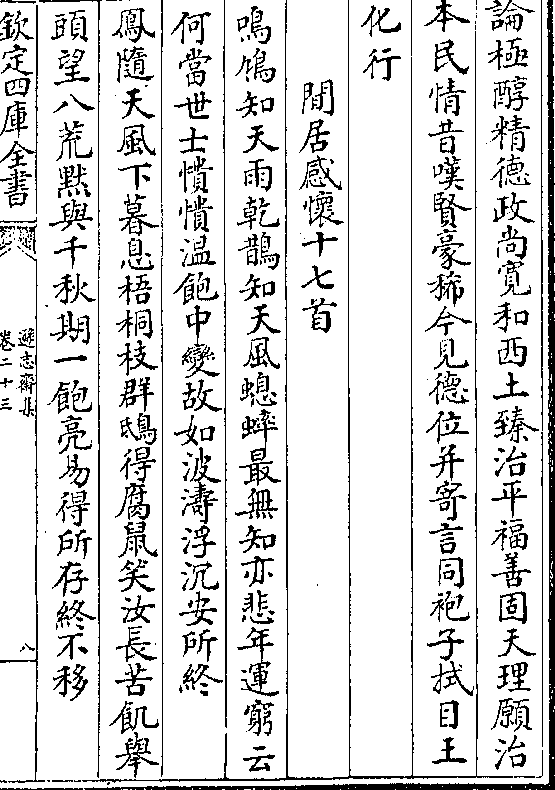 論極醇精德政尚寛和西土臻治平福善固天理願治
本民情昔嘆賢豪稀今見德位并寄言同袍子拭目王
化行
間居感懷十七首
鳴鳩知天雨乾鵲知天風蟋蟀最無知亦悲年運窮云
何當世士憒憒溫飽中變故如波濤浮沉安所終
鳳隨天風下暮息梧桐枝群鴟得腐鼠笑汝長苦飢舉
頭望八荒點與千秋期一飽亮易得所存終不移
欽定四庫全書
遜志齋集
卷二十三
八